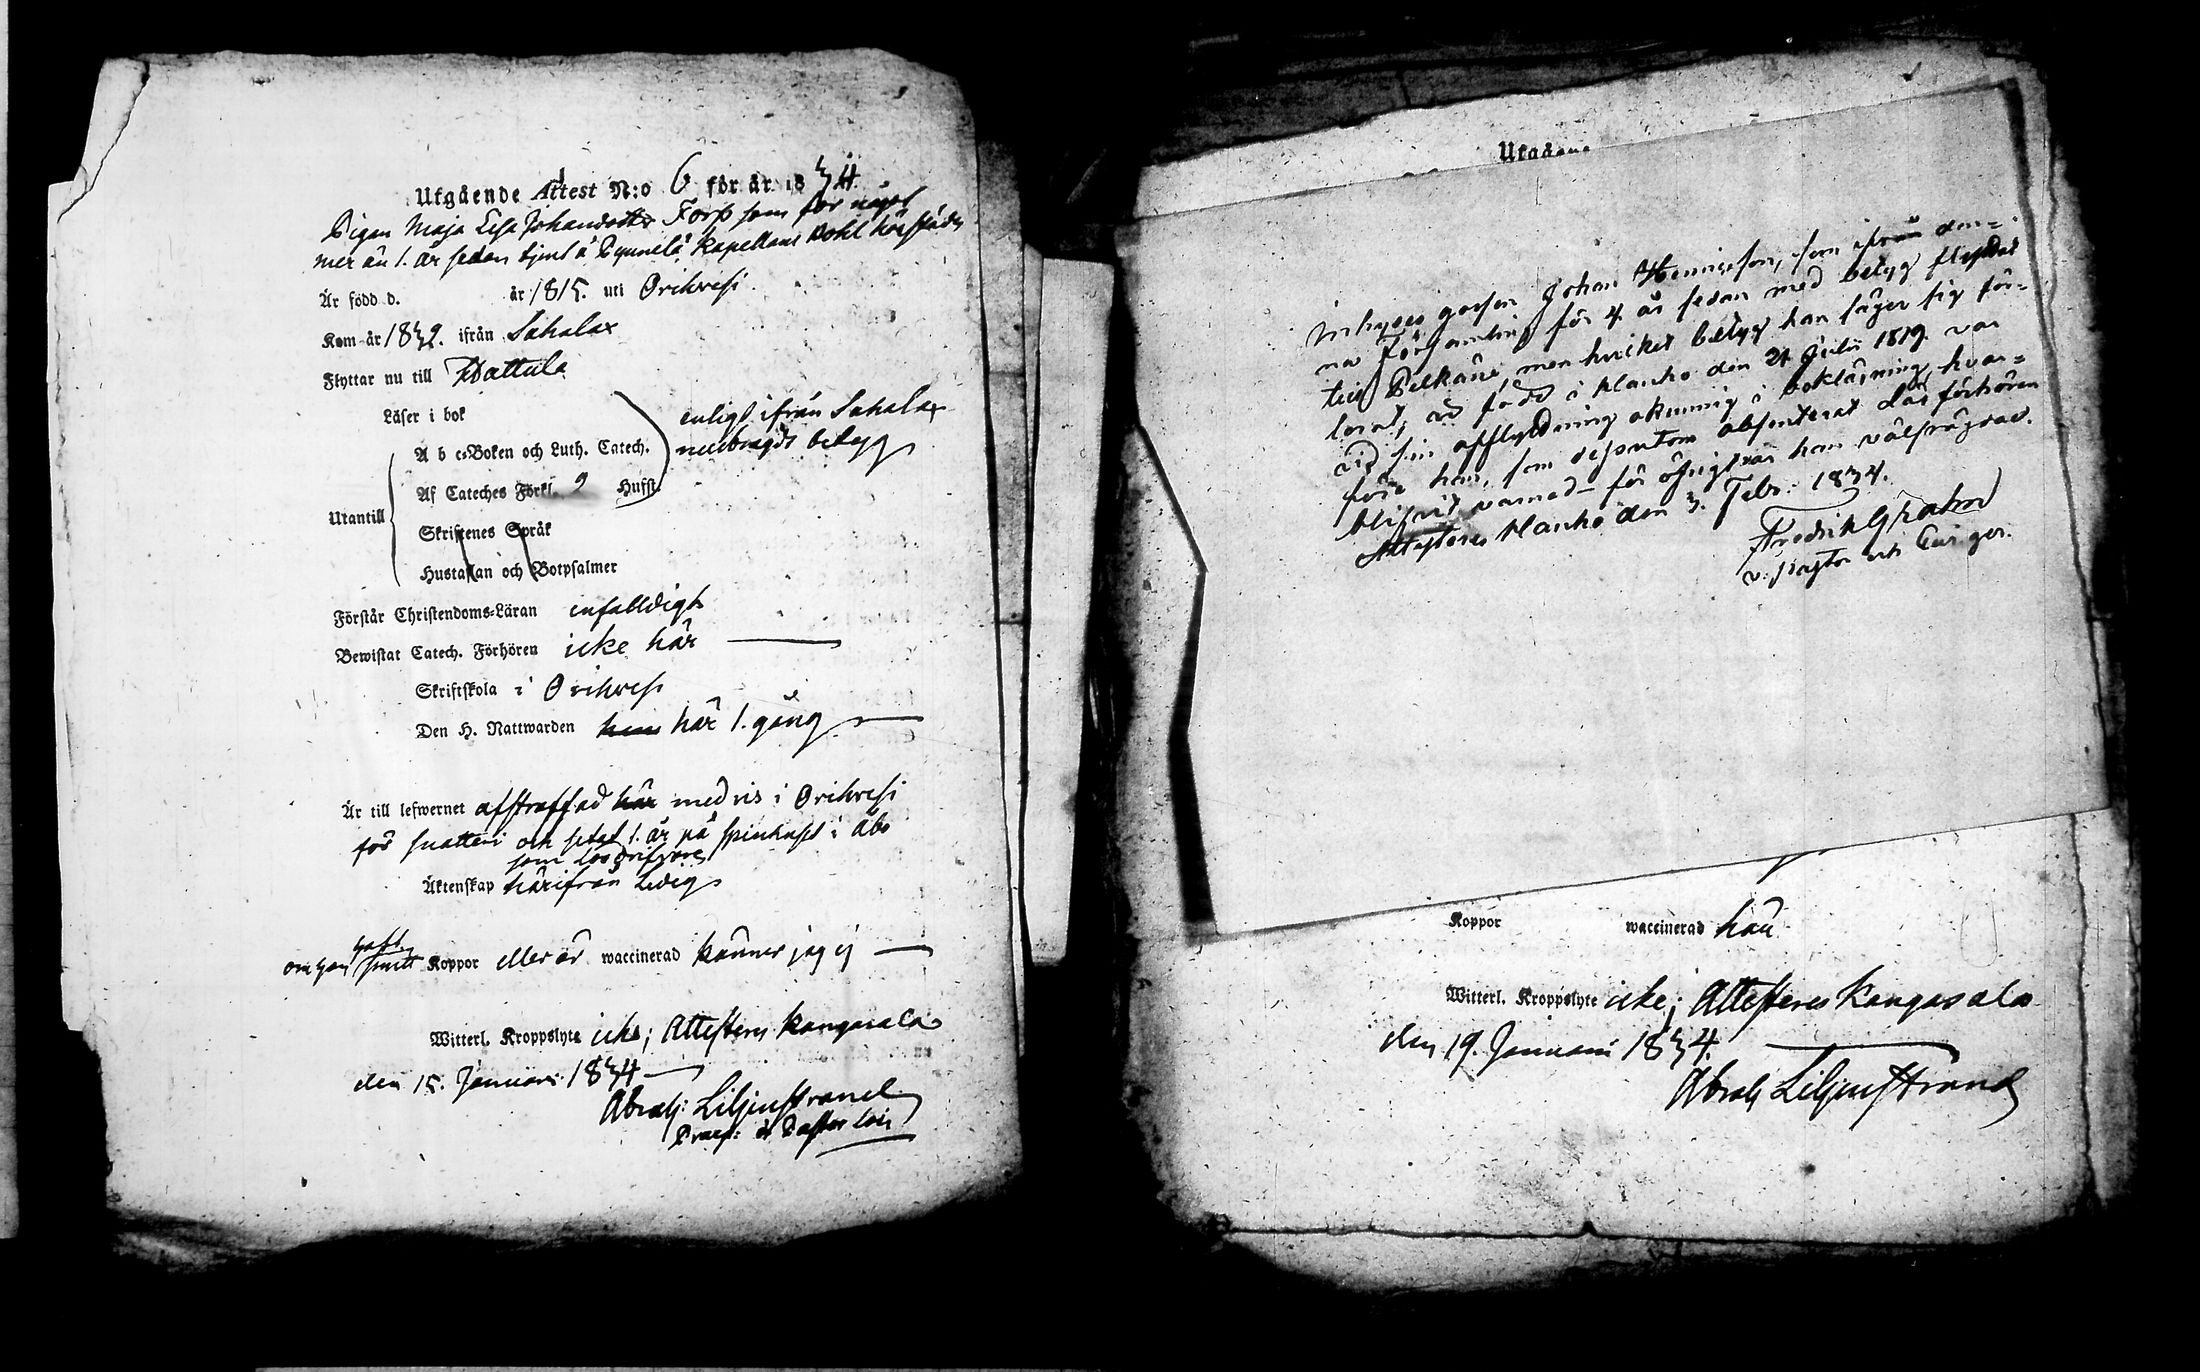 Utgående Attest N:o 6 för år 1834.
Pigan Maja Lisa Johansdotter Forss som för något
mer än 1. år sedan tjent å kapellans
Är född d. år 1815. uti Orihvesi
Kom år 1832. ifrån Sahalax
Flyttar nu till Wattula
Läser i bok
A b c-Boken och Luth. Catech.
enligt ifrån Sahalax
medbragdt betyg
Af Cateches Förkl. 9 Hufst.
Utantill
Skriftenes Språk
Hustaflan och Botpsalmer
Förstår Christendoms-Läran enfalldigt
Bewistat Catech. Förhören icke här
Skriftskola i Orihvesi
Den H. Nattwarden här 1. gång
Är till lefwernet afstraffad här med ris i Orihvesi
för snatteri och setat 1. år på spinhuset i Åbo
som lösdrifvare
Äktenskap härifrån Ledig
haft
om hon Koppor eller är waccinerad känner jag ej
Witterl. Kroppslyte icke; Attesteras Kangasala
den 15. Januari 1834
Abrah: Liljenstrand
Praep: & Pastor loci
Utgående
Inhyses gossen Johan Henricsson, som ifrån den-
na Församling för 4. år sedan med betyg flyttat
till Pelkäne men hvilket betyg han säger sig för-
lorat, är född i Klauko den 21 Julii 1819. var
vid sin afflyttning okunnig i bokläsning, hvar-
före han, som dessutom absenterat Läsförhören
blifvit varnad – för öfrigt är han välfrägdad.
Attesteras Klauko den 3. Febr: 1834.
Fredrik Grahn
v. pastor
Koppor waccinerad
Witterl. Kroppslyte icke; Attesteras Kangasala
den 19. Januari 1834.
Abrah Liljenstrand